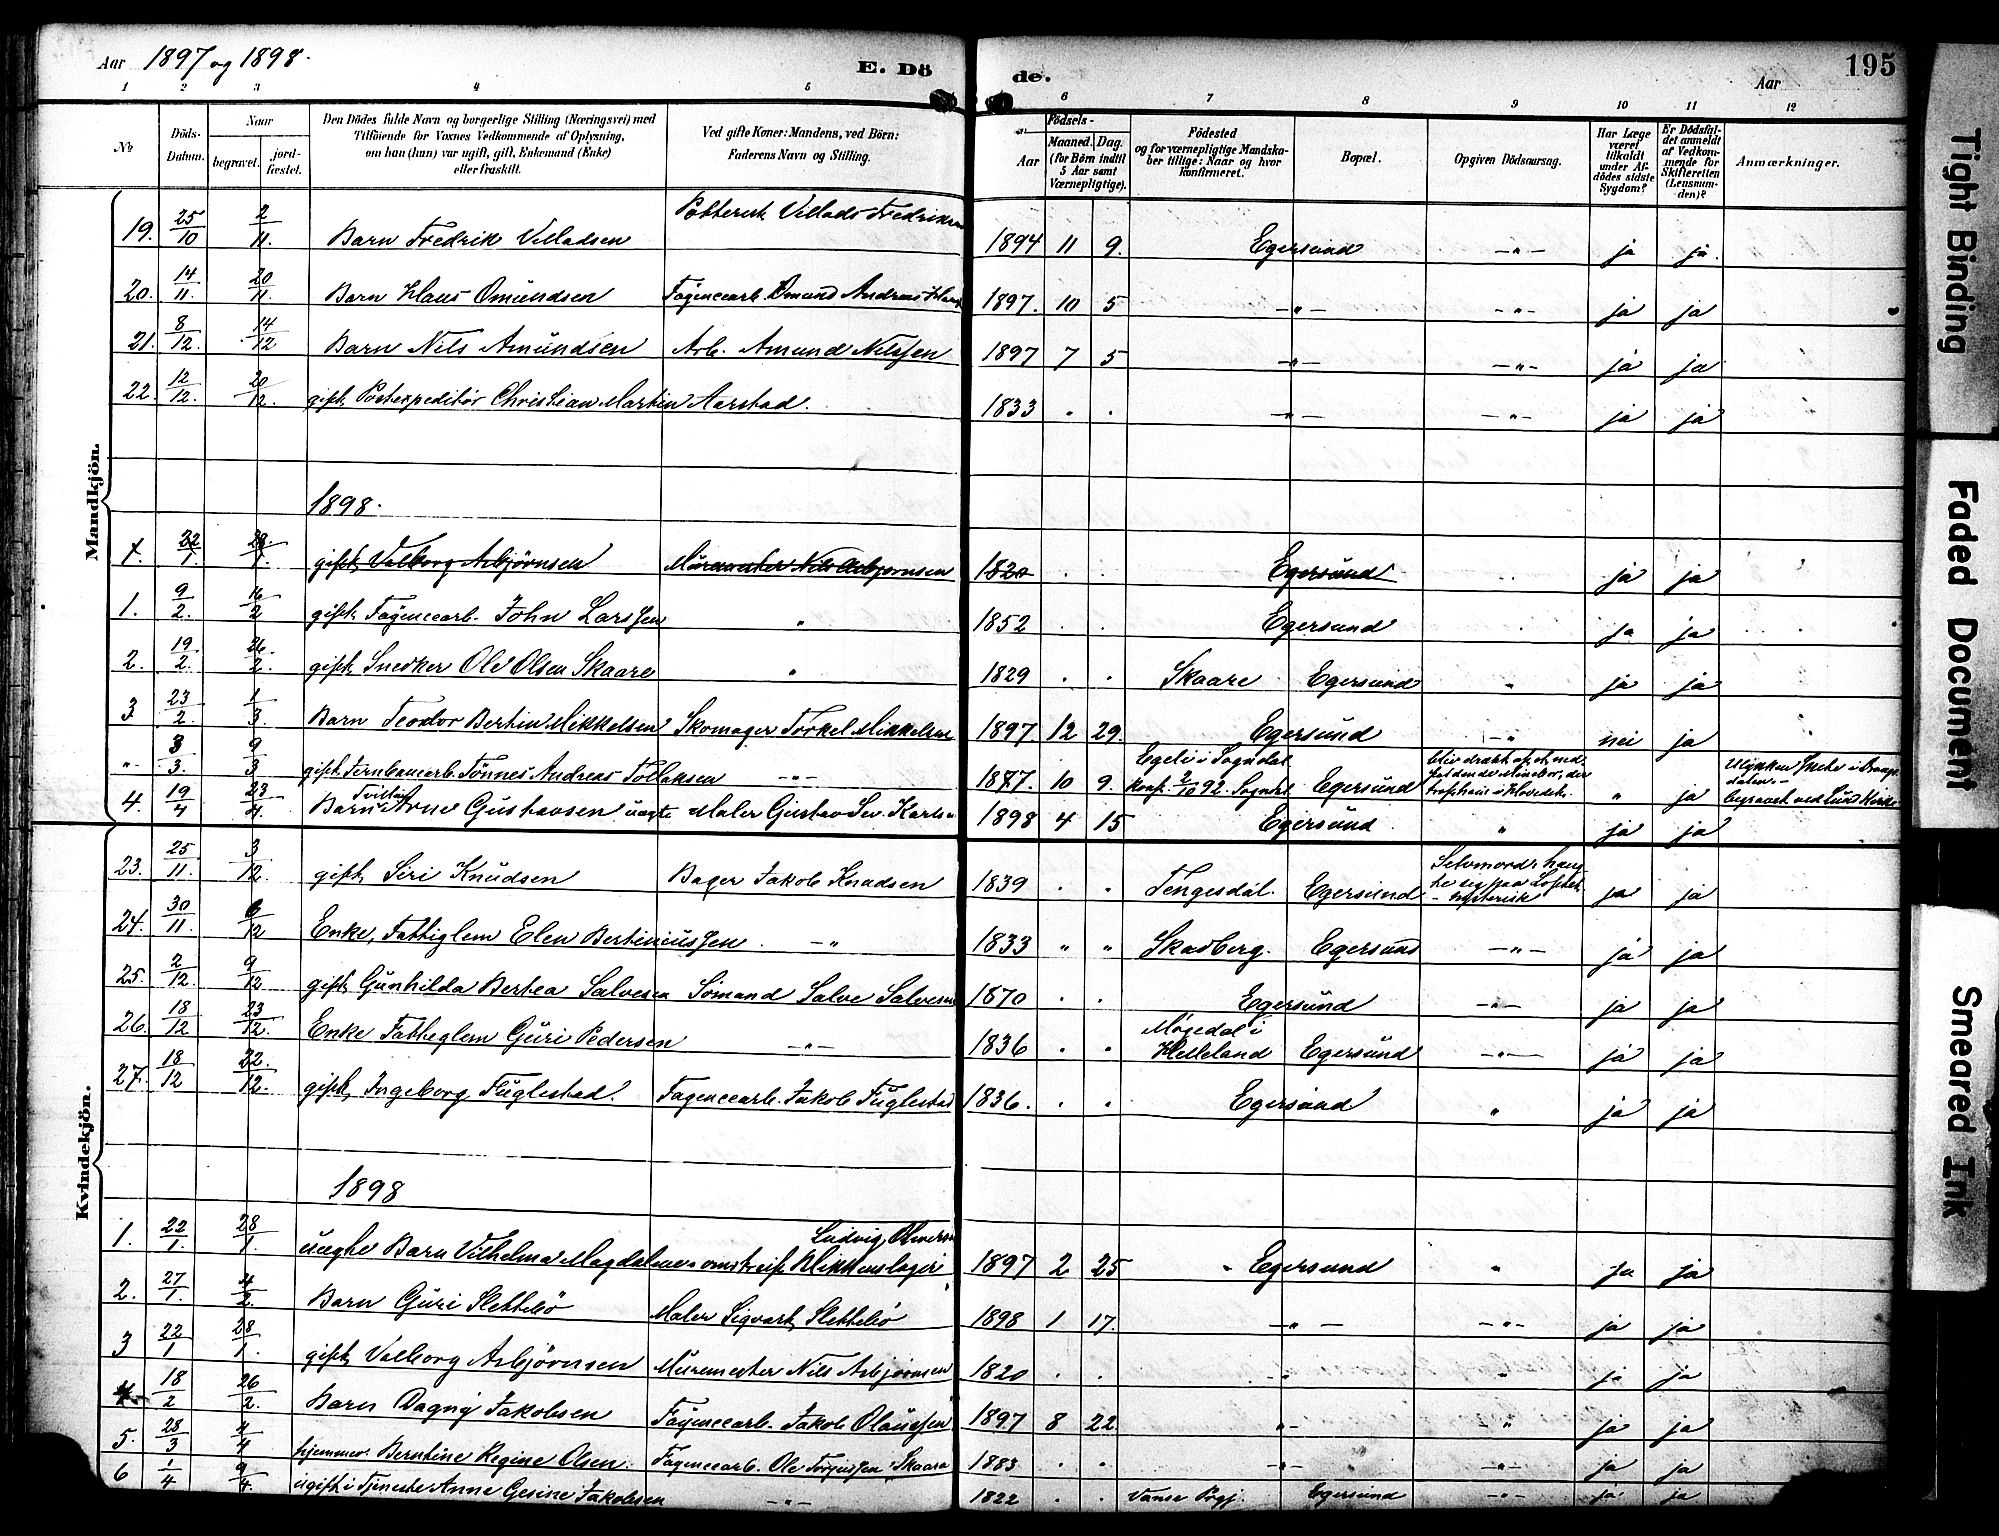 Aar 1897 og 1898. E. Dö de. Aar 195
1 2 3 4 5 6 7 8 9 10 11 12
No
Döds-Datum.
Naar
begravet.
jord-fæstet.
Den Dödes fulde Navn og borgerlige Stilling (Næringsvei) med
Tilföiende for Voxnes Vedkommende af Oplysning,
om han (hun) var ugift, gift, Enkemand (Enke)
eller fraskilt.
Ved gifte Koner: Mandens, ved Börn:
Faderens Navn og Stilling.
Födsels-
Aar
Maaned. Dag.
(for Börn indtil
5 Aar samt
Værnepligtige).
Födested
og for værnepligtige Mandska-
ber tillige: Naar og hvor
konfirmeret.
Bopæl.
Opgiven Dödsaarsag.
Har Læge
været
tilkaldt
under Af-
dödes sidste
Sygdom?
Er Dödsfal-
det anmeldt
af Vedkom-
mende for
Skifteretten
(Lensman-
den)?
Anmærkninger.
Mandkjön.
19. 25/10 2/11. Barn Fredrik Velladsen Potterish Vellads Fredriksen 1894 11 9. Egersund -"- ja ja.
20. 14/11. 20/11. Barn Klaus Omundsen Fayencearb. Omund Andreas 1897. 10 5 -"- -"- ja ja
21. 8/12. 14/12 Barn Nils Amundsen Arb. Amund Nilssen 1897 7 5 -"- -"- ja ja
22. 12/12. 20/12. gift, Postexpeditör Christian Martin Aarstad. 1833 . . -"- -"- ja ja
1898.
1. 22/1 28/1 gift, Valborg Asbjörnsen Muremester Nils Asbjornsen 1820 . . Egersund ja ja
1. 9/2. 16/2 gift, Fayencearb. John Larssen " 1852 . . Egersund ja ja
2. 19/2. 26/2. gift, Snedker Ole Olsen Skaare " 1829 . . Skaare Egersund " ja ja
3 23/2. 1/3. Barn Teodor Bertin Mikkelsen Skomager Torkel Mikkelsen 1897 12 29. Egersund -"- nei ja
"- 3/3. 9/3 gift Jernbanearb. Tönnes Andreas Tollaksen -"- 1877. 10 9. Egeli i Sogndal konf. 2/10 92. Sogndal Egersund blev dræbt af et Minebor, der traf ham i Hovedet. " ja begravet ved Lund Kirke
4. 19/4 23/4. Barn Tvilling Arne Gustavsen uægte Maler Gustav Sev. Karlsen 1898 4 15 Egersund " ja ja
Kvindekjön.
23. 25/11. 3/12. gift, Siri Knudsen Bager Jakob Knudsen 1839 . " Tengesdal. Egersund Selvmord: hæng
te sig paa Loftet
- hysterisk ja ja
24. 30/11 6/12 Enke, Fattiglem Elen Bertiniussen. -"- 1833 " " Skadberg. Egersund -"- ja ja
25. 2/12 9/12 gift, Gunhilda Bertea Salvesen Sömand Salve Salvesen 1870 . . Egersund -"- ja ja
26. 18/12 23/12. Enke Fattiglem Guri Pedersen -"- 1836 . " Mögedal i Helleland Egersund -"- ja ja
27. 18/12 22/12. gift, Ingeborg Fuglestad. Fayencearb. Jakob Fuglestad 1836. . " Egersund " ja ja
1898
1. 22/1. 28/1. uægte Barn Vilhelma Magdalene omstreif. Ludvig Blikkenslager 1897 2 25 Egersund " ja ja
2. 27/1. 4/2. Barn Guri Slettebö Maler Sigvart Slettebö 1898 1 17. -"- -"- ja ja
3 22/1 28/1. gift, Valborg Asbjörnsen Muremester Nils Asbjörnsen 1820 . . " " ja ja
4. 18/2 26/2. Barn Dagny Jakobsen Fayencearb. Jakob Olaussen 1897 8 22. "- " ja ja
5. 28/3 2/4 hjemmev. Berntine Regine Olsen. Fayencearb. Ole Torgussen Skaara 1883 . . " -"- ja ja
6 1/4 9/4. ugift i Tjeneste Anne Gesine Jakobsen -"- 1822 . . Vanse Prgj. Egersund -"- ja ja
Tight Binding
Faded Document
Smeared Ink